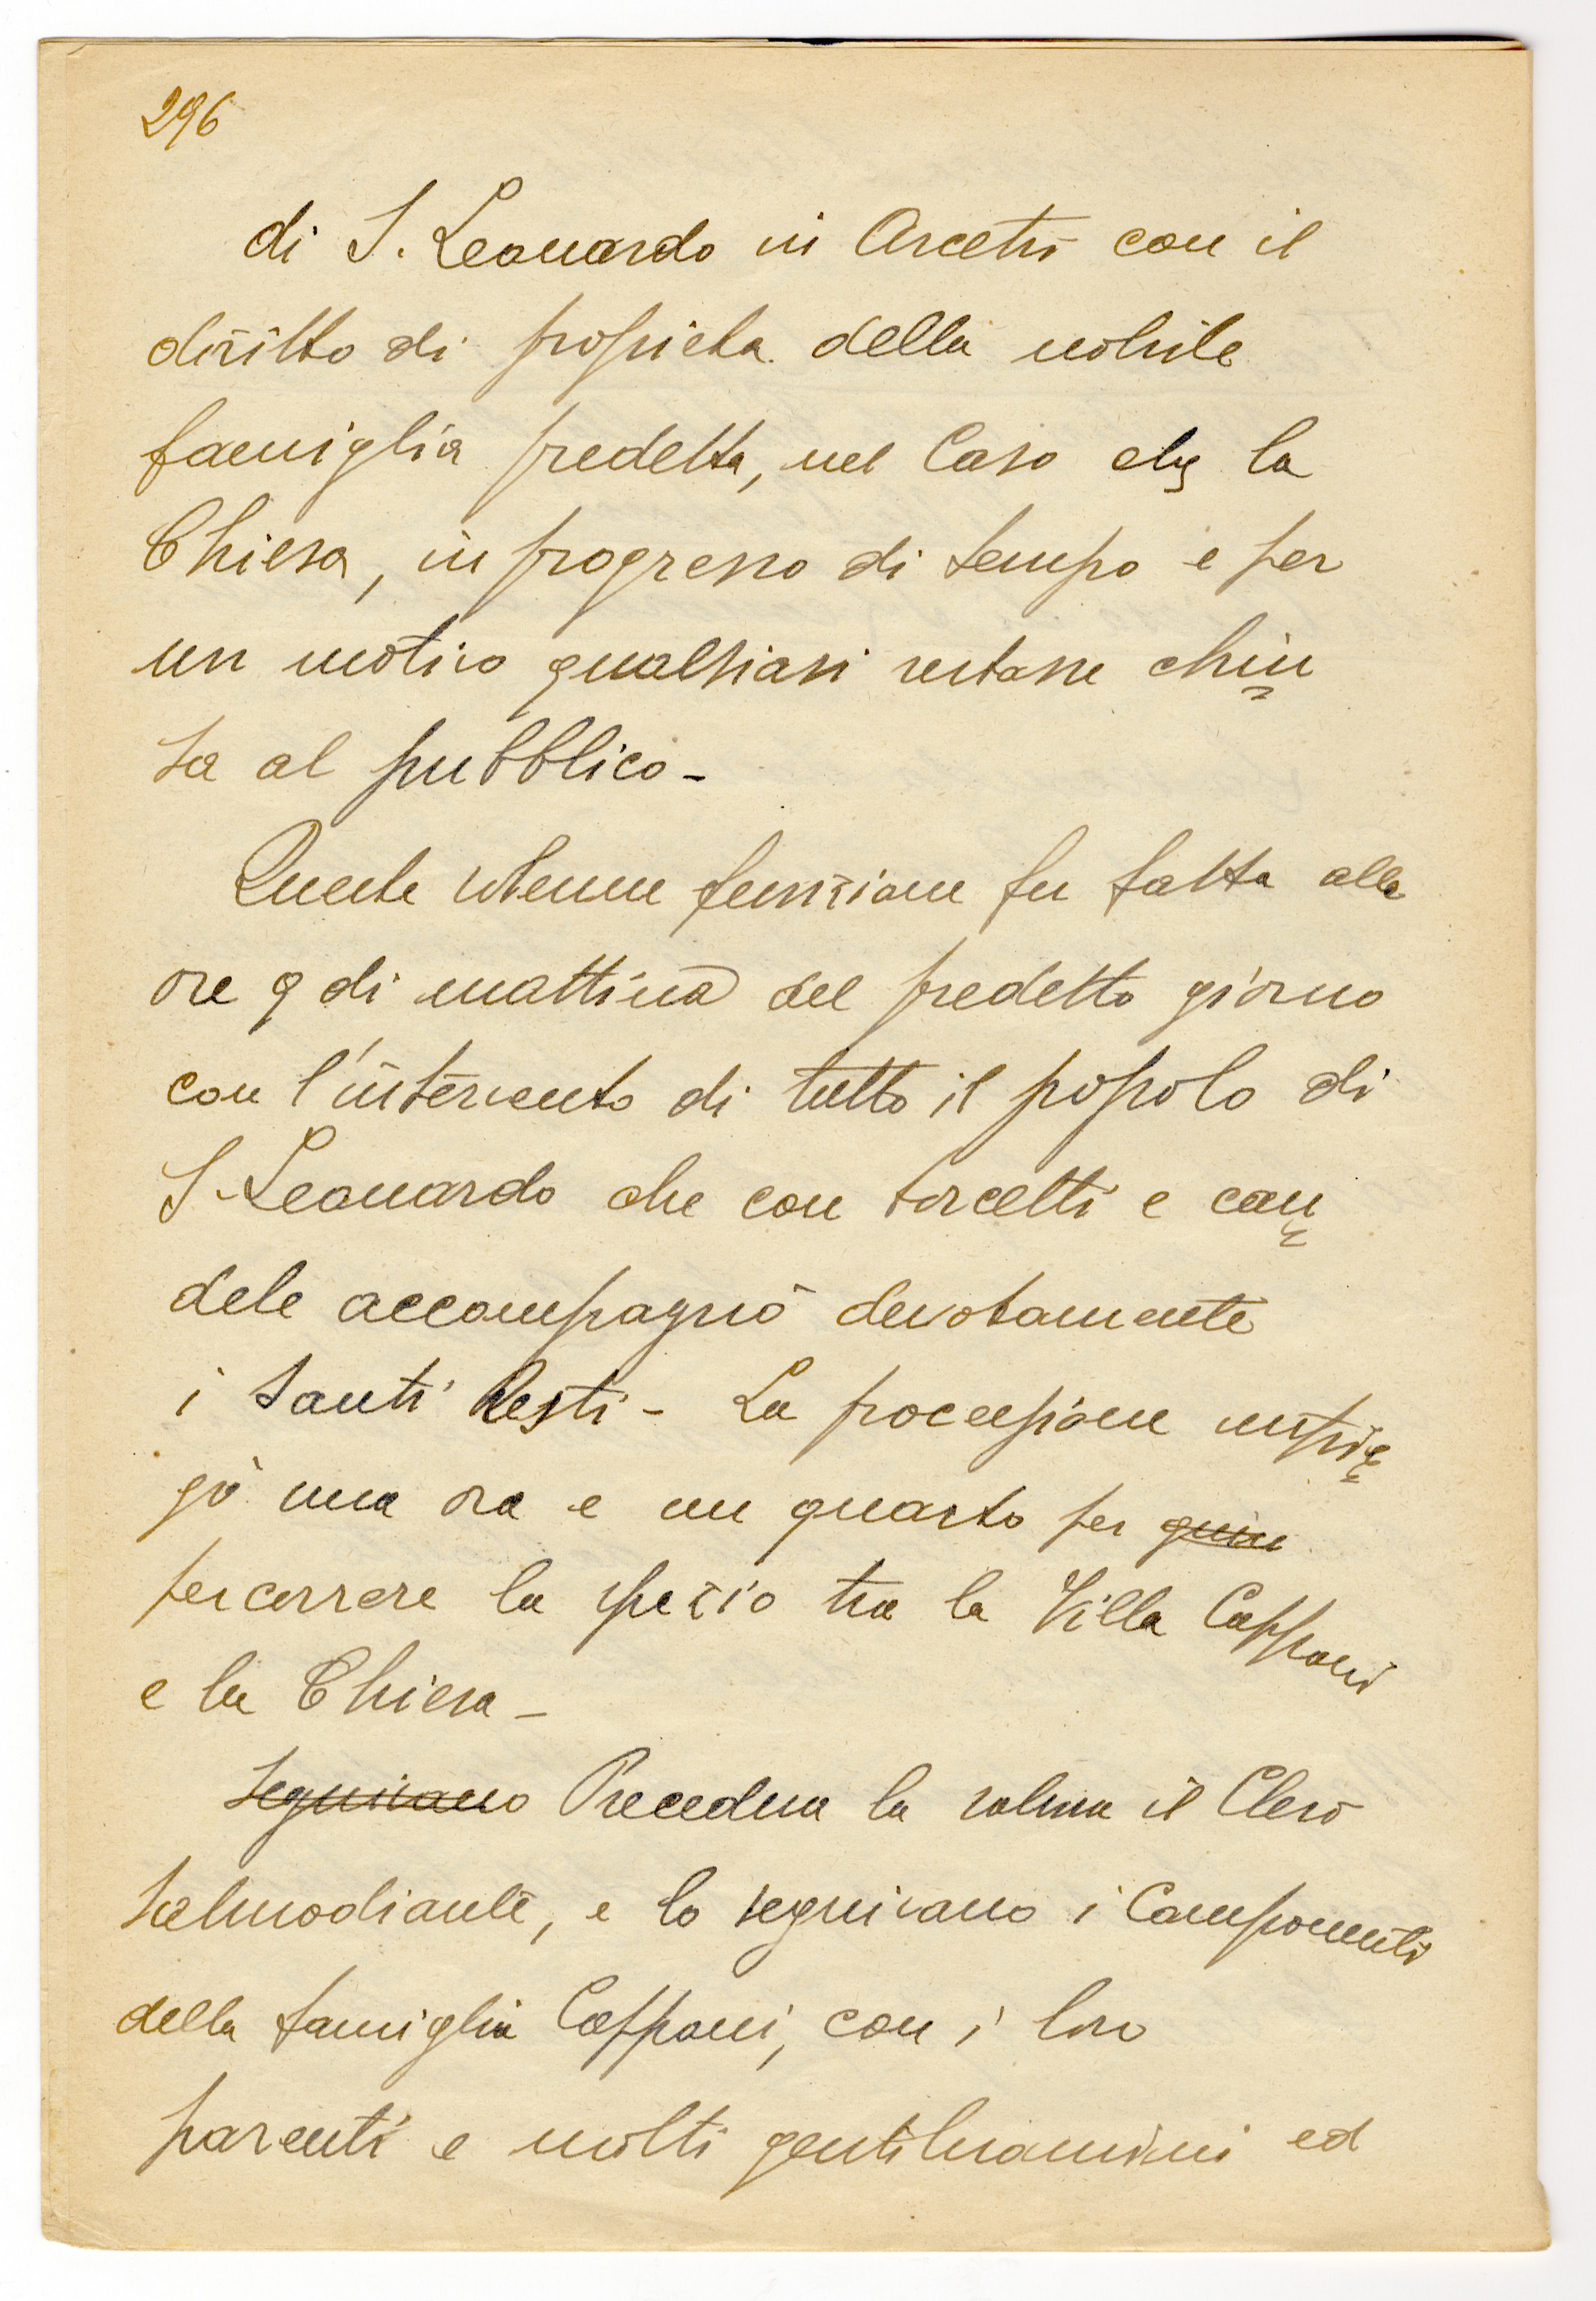 296
di S. Leonardo in Arcetri con il
diritto di propieta della nobile
famiglia predetta, nel Caso che la
Chiesa, in progresso di tempo e per
un motivo qualsiasi restasse chiu
sa al pubblico -
Queste solenne funzione fu fatta alle
ore 9 di mattina del predetto giorno
con l'intervento di tutto il popolo di
S. Leonardo che con torcetti e can
dele accompagnò devotamente
i Santi Resti - La processione impie
gò una ora e un quarto per quin
percorrere lo spazio tra la Villa Capponi
e la Chiesa -
Seguivano Precedeva la salma il Clero
Salmodiante, e lo seguivano i Componenti
della famiglia Capponi, con i loro
parenti e molti gentiluomini ed